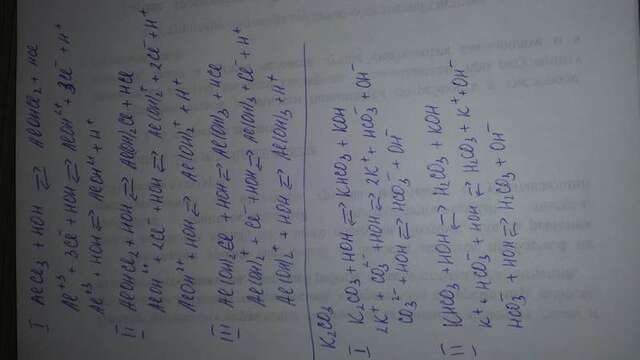 I AlCl₃ + HOH ⇄ AlOHCl₂ + HCl
Al⁺³ + 3Cl⁻ + HOH ⇄ AlOH²⁺ + 3Cl⁻ + H⁺
Al⁺³ + HOH ⇄ AlOH²⁺ + H⁺
II AlOHCl₂ + HOH ⇄ Al(OH)₂Cl + HCl
AlOH²⁺ + 2Cl⁻ + HOH ⇄ Al(OH)₂⁺ + 2Cl⁻ + H⁺
AlOH²⁺ + HOH ⇄ Al(OH)₂⁺ + H⁺
III Al(OH)₂Cl + HOH ⇄ Al(OH)₃ + HCl
Al(OH)₂⁺ + Cl⁻ + HOH ⇄ Al(OH)₃ + Cl⁻ + H⁺
Al(OH)₂⁺ + HOH ⇄ Al(OH)₃ + H⁺
K₂CO₃
I K₂CO₃ + HOH ⇄ KHCO₃ + KOH
2K⁺ + CO₃²⁻ + HOH ⇄ 2K⁺ + HCO₃⁻ + OH⁻
CO₃²⁻ + HOH ⇄ HCO₃⁻ + OH⁻
II KHCO₃ + HOH ⇄ H₂CO₃ + KOH
K⁺ + HCO₃⁻ + HOH ⇄ H₂CO₃ + K⁺ + OH⁻
HCO₃⁻ + HOH ⇄ H₂CO₃ + OH⁻